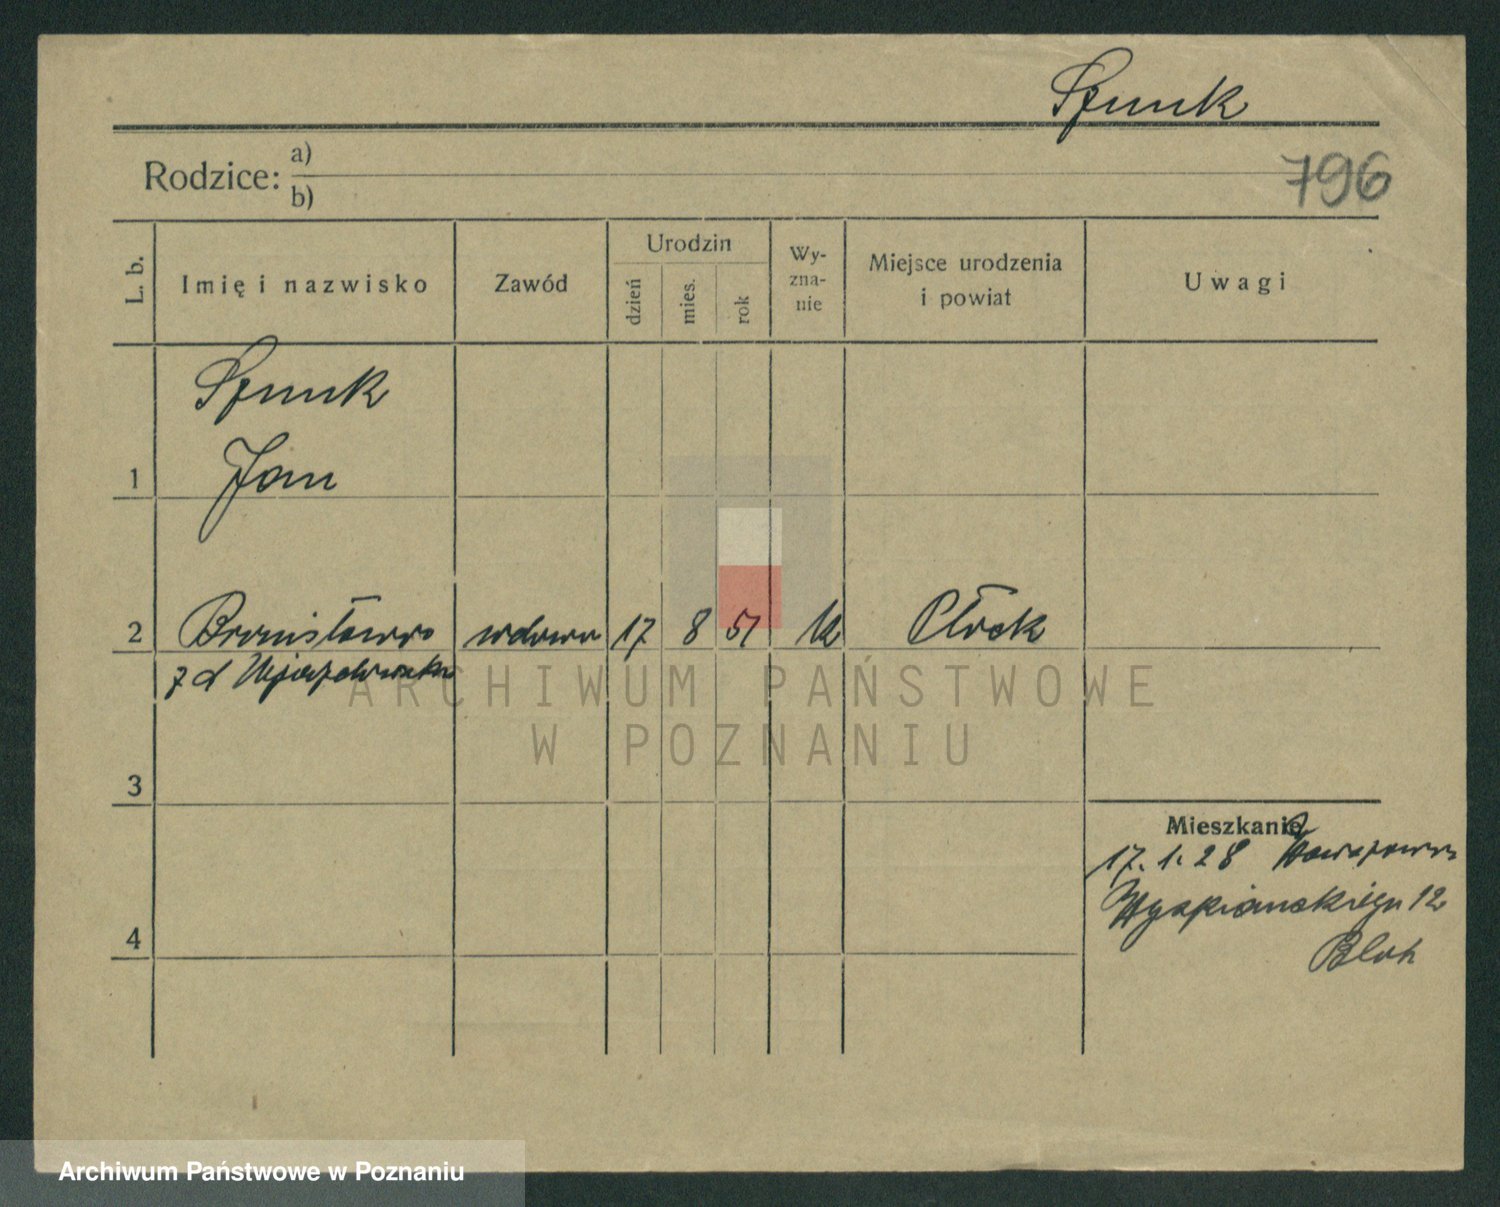 Szunk
796
Rodzice: a)
b)
L. b.
Imię i nazwisko
Zawód
Urodzin
dzień
mies.
rok
Wy-
zna-
nie
Miejsce urodzenia
i powiat
Uwagi
Szunk
Jan
1
2 Bronisława wdowa 17 8 51 k Płock
z d
3
4
Mieszkanie
17. 1. 28 Warszawa
Wyspiańskiego 12
ARCHIWUM PAŃSTWOWE
W POZNANIU
Archiwum Państwowe w Poznaniu